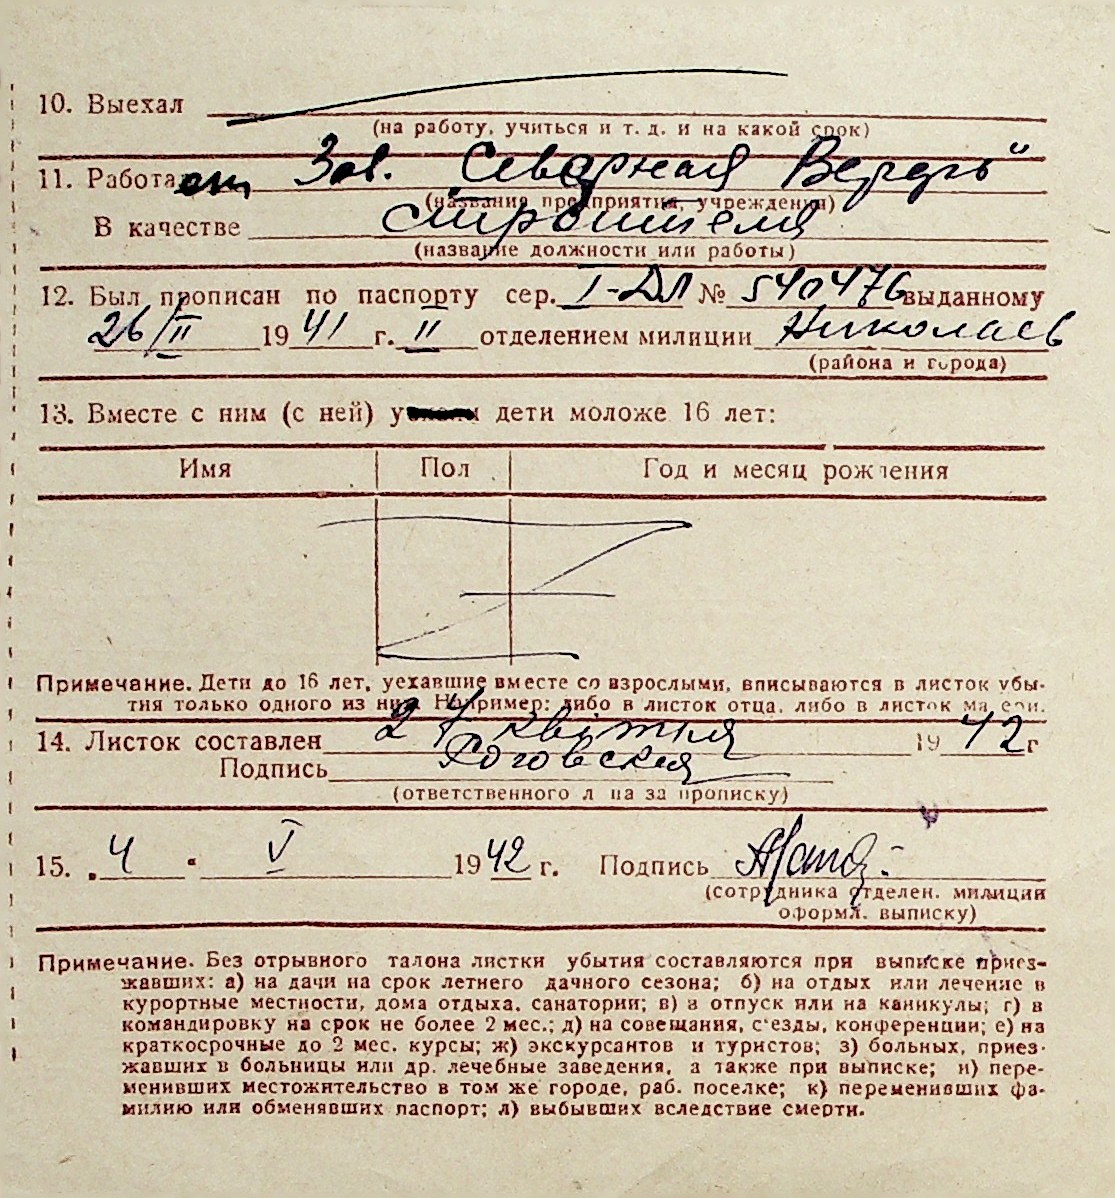 10. Выехал
(на работу, учиться и т. д. и на какой срок)
11. Работа ет Зав. „Северная Верфь"
(название предприятия, учреждения)
В качестве строителя
(название должности или работы)
12. Был прописан по паспорту сер. I-ДЛ № 540476 выданному
26/II 1941 г. II отделением милиции Николаев
(района и города)
13. Вместе с ним (с ней) у дети моложе 16 лет:
Имя Пол Год и месяц рождения
Примечание. Дети до 16 лет, уехавшие вместе со взрослыми, вписываются в листок убы-
тия только одного из них. Например: либо в листок отца, либо в листок матери.
14. Листок составлен 24 квітня 1942 г
Подпись Роговская
(ответственного лица за прописку)
15. „4 " V 1942 г. Подпись
(сотрудника отделен. милиции
оформл. выписку)
Примечание. Без отрывного талона листки убытия составляются при выписке приез-
жавших: а) на дачи на срок летнего дачного сезона; б) на отдых или лечение в
курортные местности, дома отдыха, санатории; в) в отпуск или на каникулы; г) в
командировку на срок не более 2 мес.; д) на совещания, с'езды, конференции; е) на
краткосрочные до 2 мес. курсы; ж) экскурсантов и туристов; з) больных, приез-
жавших в больницы или др. лечебные заведения, а также при выписке; и) пере-
менивших местожительство в том же городе, раб. поселке; к) переменивших фа-
милию или обменявших паспорт; л) выбывших вследствие смерти.